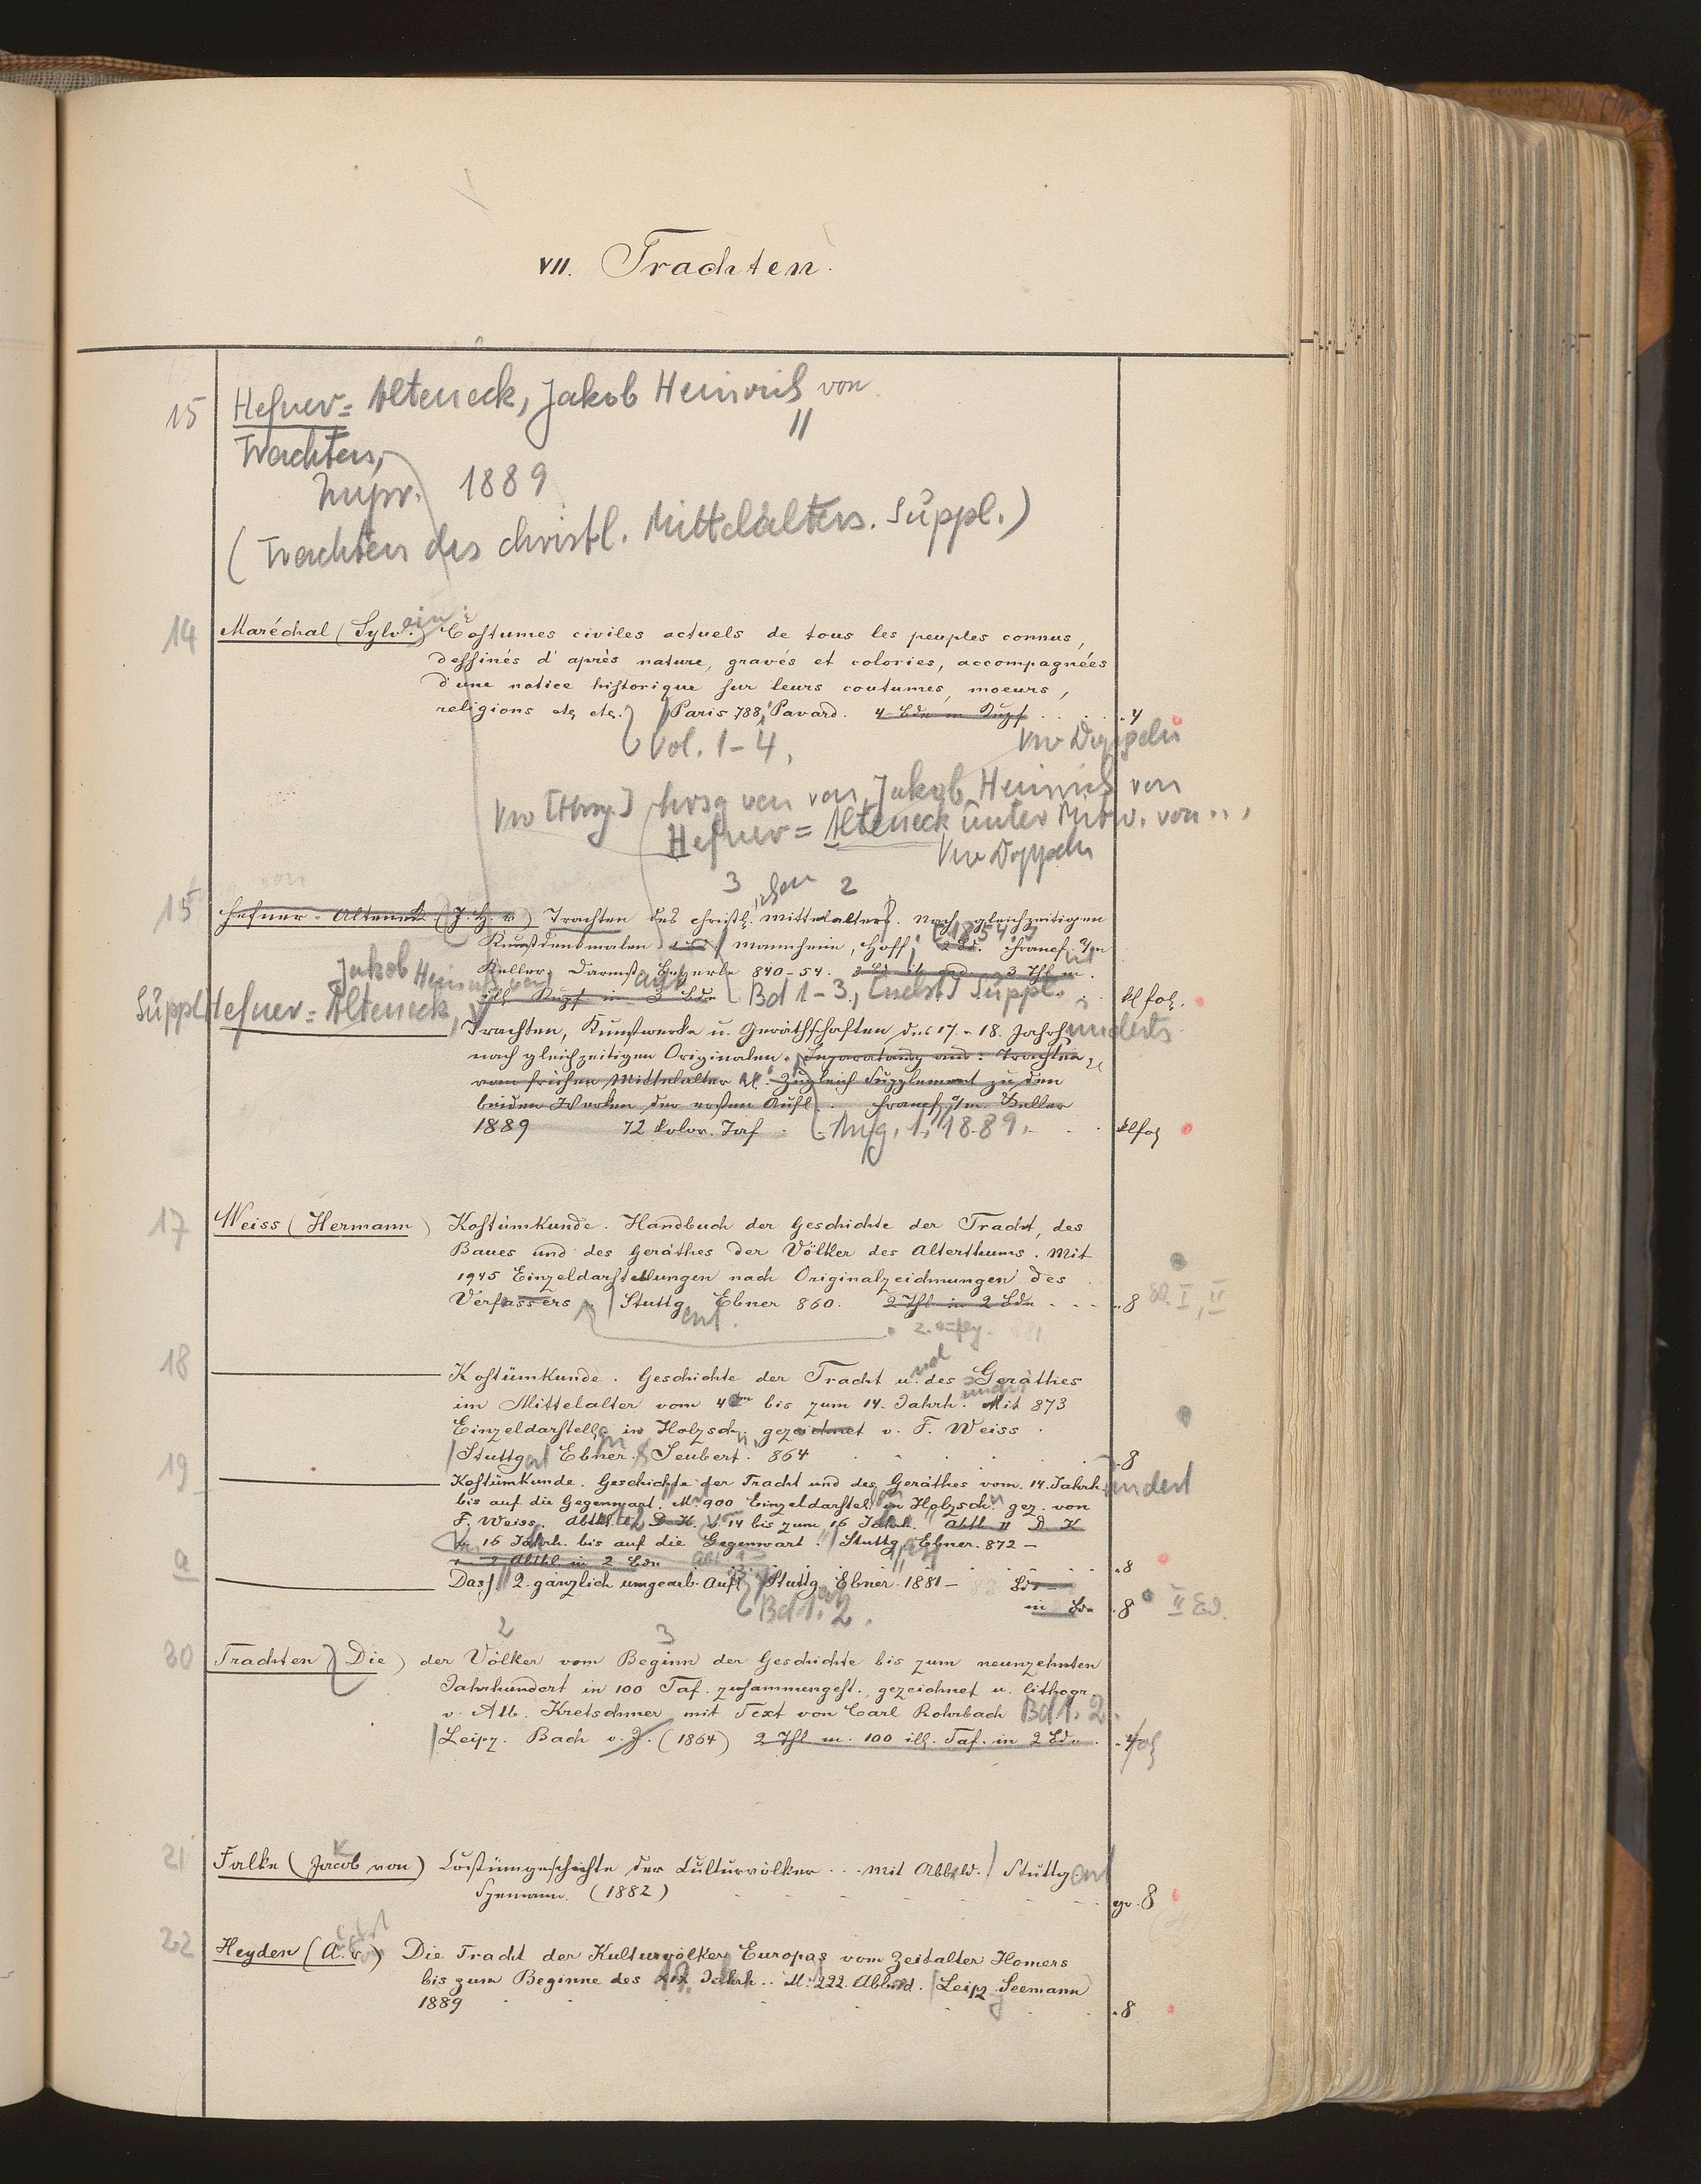 VII. Trachten.
15 Hefner=Alteneck, Jakob Heinrich von
Trachten,
1889
(Trachten des christl. Mittelalters. Suppl.)
14 Maréchal (Sylvain) Costumes civiles actuels de tous les peuples connus,
dessinés d'après nature, gravés et colories, accompagnées
d'une notice historique sur leurs coutumes, moeurs,
religions etc etc. Paris 788, Pavard. 4 Bde m Kupf . . . . . 4
Vol. 1-4,
Vw Doppeln
Vw [Hrsg.] hrsg von von Jakob Heinrich von
Hefner=Alteneck unter Mitw. von ..,
Vw Doppeln
3 2
15 Hefner-Alteneck (J. H. v) Trachten des christlichen Mittelalters. Nach gleichzeitigen
Kunstdenkmalen Mannheim, Hoff, 1854 Francf a/m
Keller, Darmstadt Beyerle 840-54. 3 Thl m.
ill. Kupf. in 3 Bde Bd 1-3, [nebst] Suppl. kl fol.
Jakob Heinrich von
Suppl Hefner=Alteneck,
Trachten, Kunstwerke u. Geräthschaften des 17.-18. Jahrhunderts
nach gleichzeitigen Originalen. Separatausg aus: Trachten
vom frühen Mittelalter etc. Zugleich Supplement zu den
beiden Werken der ersten Aufl. Francf a/m. Keller
1889 72 kolor. Taf . Aufg. 1, 1889. klfol
17 Weiss (Hermann) Kostümkunde. Handbuch der Geschichte der Tracht, des
Baues und des Geräthes der Völker des Alterthums. Mit
1945 Einzeldarstellungen nach Originalzeichnungen des
Verfassers. Stuttgart. Ebner 860. 2 Thl in 2 Bde . . . . 8 Bd. I, II
2. Aufg. 881
18 Kostümkunde. Geschichte der Tracht und des Geräthes
im Mittelalter vom 4ten bis zum 14. Jahrh. Mit 873
Einzeldarstellgn in Holzschn. gezeichnet v. F. Weiss.
Stuttgart Ebner & Seubert. 864 . 8
19 Kostümkunde. Geschichte der Tracht und des Geräthes vom 14. Jahrhundert
bis auf die Gegenwart. M. 900 Einzeldarstel. in Holzschn. gez. von
F. Weiss. Abthl I, D. K. v 14 bis zum 16 Jahrh. Abthl II D K
v. 16 Jahrh. bis auf die Gegenwart. Stuttg. Ebner. 872 -
2 Abthl in 2 Bde . 8
a Dass. 2. gänzlich umgearb. Aufl. Stuttg. Ebner. 1881 - 83 Bde
in Bde . 8 II Bd.
Bd 1. 2.
2 3
20 Trachten (Die) der Völker vom Beginn der Geschichte bis zum neunzehnten
Jahrhundert in 100 Taf. zusammengest., gezeichnet u. lithogr.
v. Alb. Kretschmer mit Text von Carl Rohrbach Bd 1. 2.
Leipz. Bach o. J. (1864) 2 Thl m. 100 ill. Taf. in 2 Bde . 4 fol
21 Falke (Jacob von) Costümgeschichte der Culturvölker . . . Mit Abbild. Stuttgart
Spemann. (1882) gr. 8
22 Heyden (A. v.) Die Tracht der Kulturvölker Europas vom Zeitalter Homers
bis zum Beginne des XIX. Jahrh.. M. 222 Abbild. Leipz. Seemann
1889 . 8